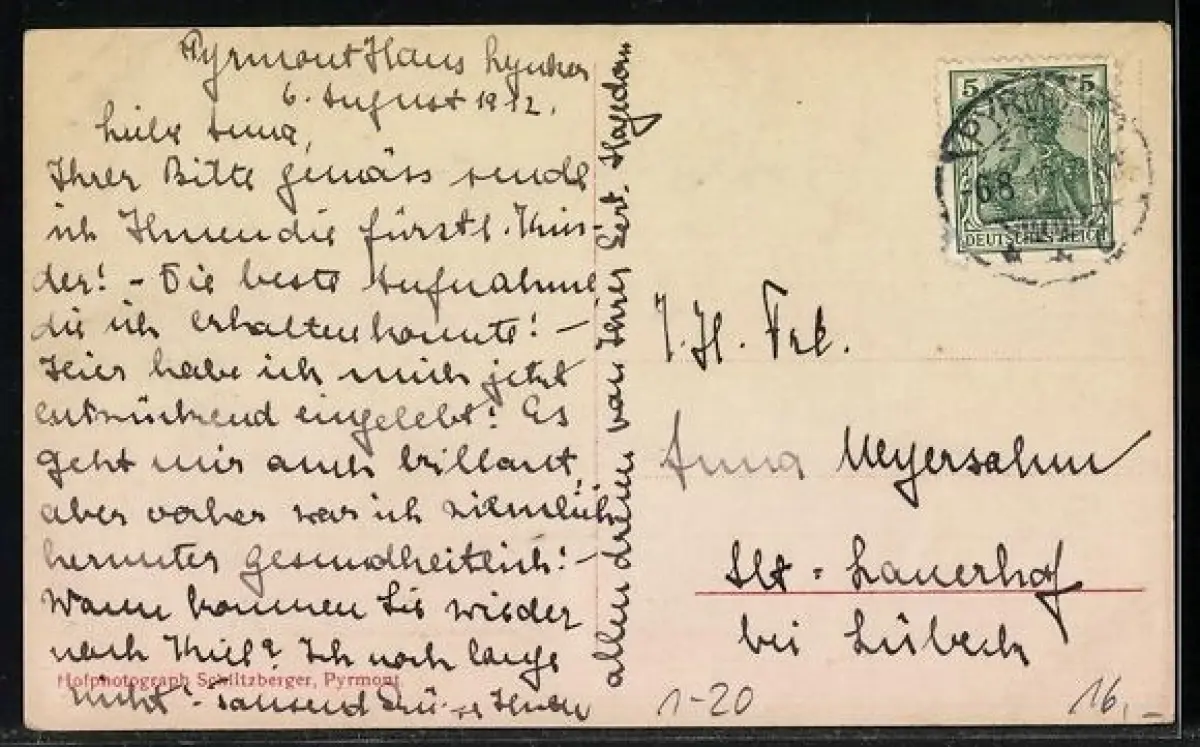 Pyrmont Haus Lyncker
6. August 1912.
Liebe Anna,
Ihrer Bitte gemäss sende
ich Ihnen die fürstl. Kin-
der! - Die beste Aufnahme,
die ich erhalten konnte! -
Hier habe ich mich jetzt
entzückend eingelebt! Es
geht mir auch brillant,
aber vorher war ich ziemlich
herunter gesundheitlich! -
Wann kommen Sie wieder
nach Kiel? Ich noch lange
nicht! - Tausend Grüsse Ihnen
allen dreien von Ihrer Gert. Hagedorn
Hofphotograph Schlitzberger, Pyrmont
5 5
DEUTSCHES REICH
PYRMONT
6 8
I. H. Frl.
Anna Meyersahm
Alt = Lauerhof
bei Lübeck
1-20
16,-